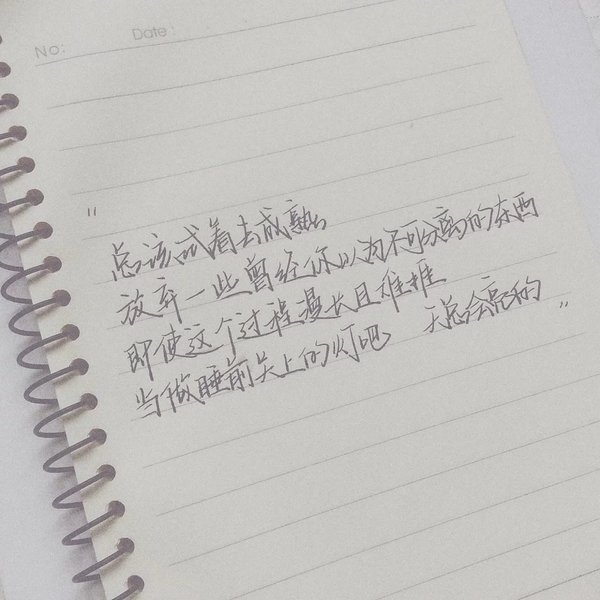 No: Date:
"
总该试着去成熟
放弃一些曾经你以为不可分离的东西
即使这个过程漫长且难捱
当做睡前关上的灯吧 天总会亮的"